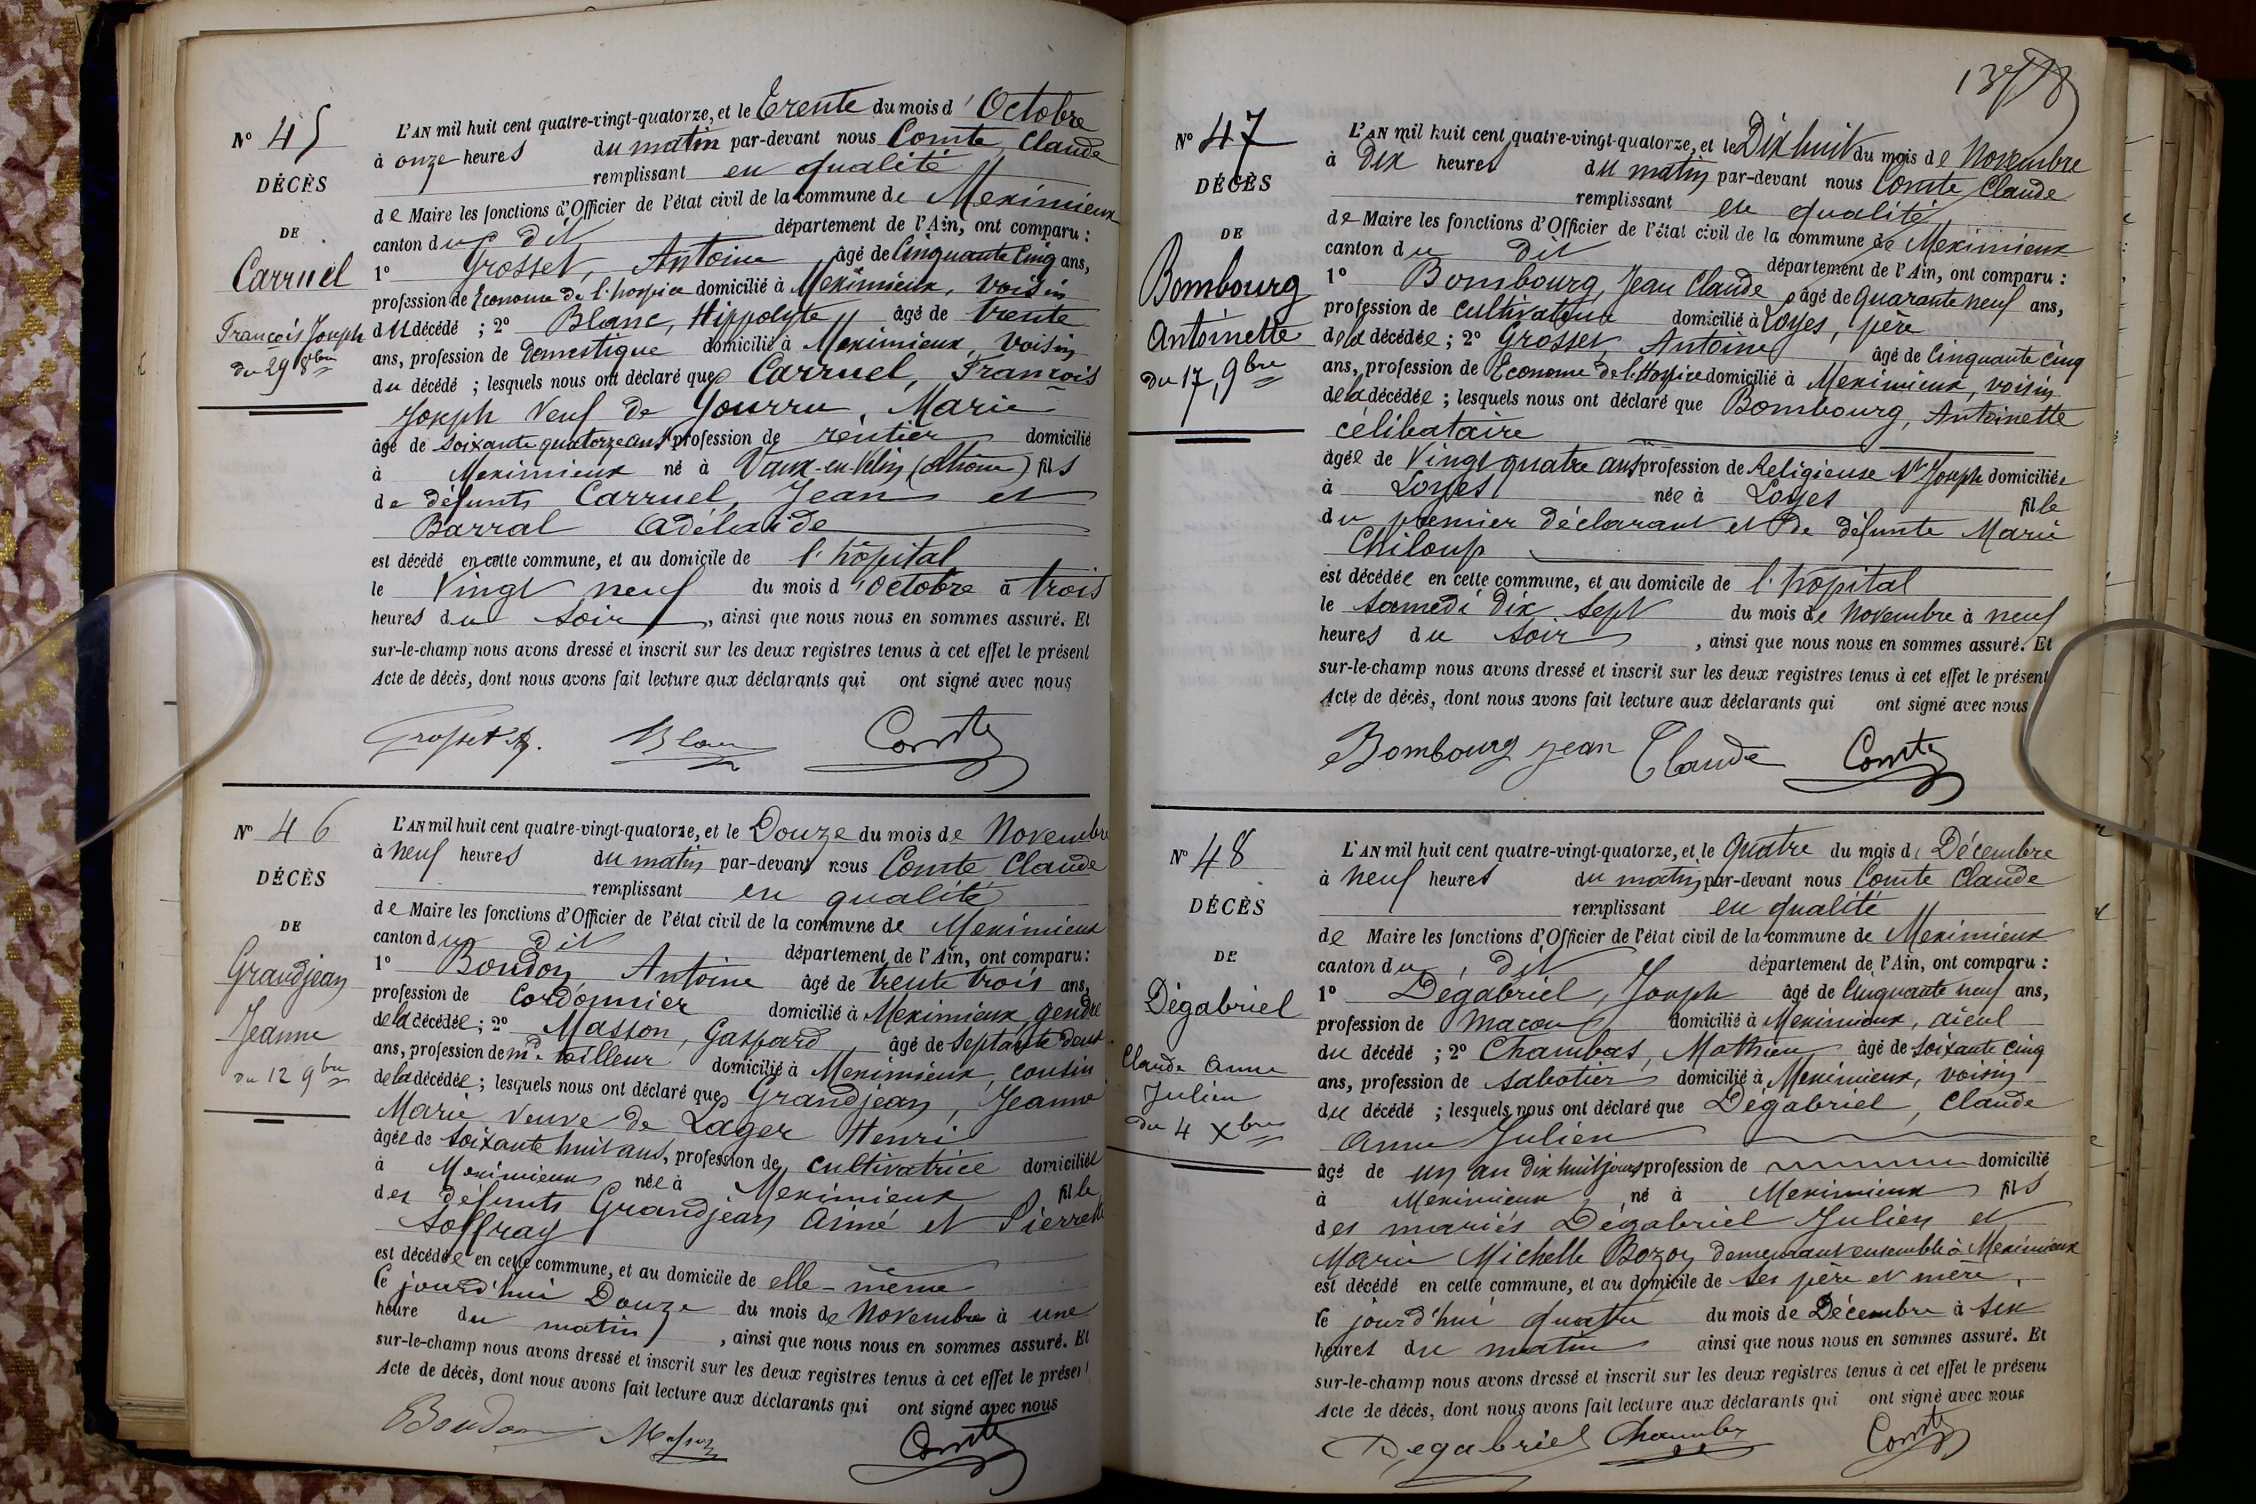 N° 45
DÉCÈS
DE
Carruel
François Joseph
du 29 8bre
L'AN mil huit cent quatre-vingt-quatorze, et le Trente du mois d'Octobre
à onze heures du matin par-devant nous Comte Claude
remplissant en qualité
de Maire les fonctions d'Officier de l'état civil de la commune de Meximieux
canton du dit département de l'Ain, ont comparu :
1° Grosset, Antoine âgé de Cinquante Cinq ans,
profession de Econome de l'hospice domicilié à Meximieux, voisin
du décédé ; 2° Blanc, Hippolyte âgé de trente
ans, profession de Domestique domicilié à Meximieux, voisin
du décédé ; lesquels nous ont déclaré que Carruel, François
Joseph Veuf de Jourru, Marie
âgé de soixante quatorze ans profession de rentier domicilié
à Meximieux né à Vaux-en-Velin (Rhône) fils
de défunts Carruel, Jean et
Barral Adélaïde
est décédé en cette commune, et au domicile de l'hôpital
le Vingt neuf du mois d'Octobre à trois
heures du soir, ainsi que nous nous en sommes assuré. Et
sur-le-champ nous avons dressé et inscrit sur les deux registres tenus à cet effet le présent
Acte de décès, dont nous avons fait lecture aux déclarants qui ont signé avec nous
Grosset A. Blanc Comte
N° 46
DÉCÈS
DE
Grandjean
Jeanne
du 12 9bre
L'AN mil huit cent quatre-vingt-quatorze, et le Douze du mois de Novembre
à neuf heures du matin par-devant nous Comte Claude
remplissant en qualité
de Maire les fonctions d'Officier de l'état civil de la commune de Meximieux
canton du dit département de l'Ain, ont comparu :
1° Boudon, Antoine âgé de trente trois ans,
profession de Cordonnier domicilié à Meximieux gendre
de la décédée ; 2° Masson, Gaspard âgé de septante deux
ans, profession de md. tailleur domicilié à Meximieux, cousin
de la décédée ; lesquels nous ont déclaré que Grandjean, Jeanne
Marie veuve de Lager Henri
âgée de soixante huit ans, profession de cultivatrice domiciliée
à Meximieux née à Meximieux fille
des défunts Grandjean Aimé et Pierrette
Soffray
est décédée en cette commune, et au domicile de elle-même
le jourd'hui Douze du mois de Novembre à une
heure du matin, ainsi que nous nous en sommes assuré. Et
sur-le-champ nous avons dressé et inscrit sur les deux registres tenus à cet effet le présent
Acte de décès, dont nous avons fait lecture aux déclarants qui ont signé avec nous
Boudon Masson Comte
N° 47
DÉCÈS
DE
Bombourg
Antoinette
du 17, 9bre
L'AN mil huit cent quatre-vingt-quatorze, et le Dix huit du mois de Novembre
à dix heures du matin par-devant nous Comte Claude
remplissant en qualité
de Maire les fonctions d'Officier de l'état civil de la commune de Meximieux
canton du dit département de l'Ain, ont comparu :
1° Bombourg, Jean Claude âgé de quarante neuf ans,
profession de cultivateur domicilié à Loyes, père
de la décédée ; 2° Grosset Antoine âgé de Cinquante Cinq
ans, profession de Econome de l'Hospice domicilié à Meximieux, voisin
de la décédée ; lesquels nous ont déclaré que Bombourg, Antoinette
célibataire
âgée de Vingt quatre ans profession de Religieuse St Joseph domiciliée
à Loyes née à Loyes fille
du premier déclarant et de défunte Marie
Chiloup
est décédée en cette commune, et au domicile de l'hôpital
le samedi dix sept du mois de Novembre à neuf
heures du soir, ainsi que nous nous en sommes assuré. Et
sur-le-champ nous avons dressé et inscrit sur les deux registres tenus à cet effet le présent
Acte de décès, dont nous avons fait lecture aux déclarants qui ont signé avec nous
Bombourg jean Claude Comte
N° 48
DÉCÈS
DE
Dégabriel
Claude Anne
Julien
du 4 Xbre
L'AN mil huit cent quatre-vingt-quatorze, et le quatre du mois d Décembre
à neuf heures du matin par-devant nous Comte Claude
remplissant en qualité
de Maire les fonctions d'Officier de l'état civil de la commune de Meximieux
canton du dit département de l'Ain, ont comparu :
1° Dégabriel, Joseph âgé de Cinquante neuf ans,
profession de Maçon domicilié à Meximieux, aïeul
du décédé ; 2° Chambas, Mathieu âgé de soixante cinq
ans, profession de sabotier domicilié à Meximieux, voisin
du décédé ; lesquels nous ont déclaré que Dégabriel, Claude
Anne Julien
âgé de un an dix huit jours profession de domicilié
à Meximieux né à Meximieux fils
des mariés Dégabriel Julien et
Marie Michelle Bozon demeurant ensemble à Meximieux
est décédé en cette commune, et au domicile de ses père et mère,
le jourd'hui quatre du mois de Décembre à six
heures du matin ainsi que nous nous en sommes assuré. Et
sur-le-champ nous avons dressé et inscrit sur les deux registres tenus à cet effet le présent
Acte de décès, dont nous avons fait lecture aux déclarants qui ont signé avec nous
Degabriel Chambas Comte